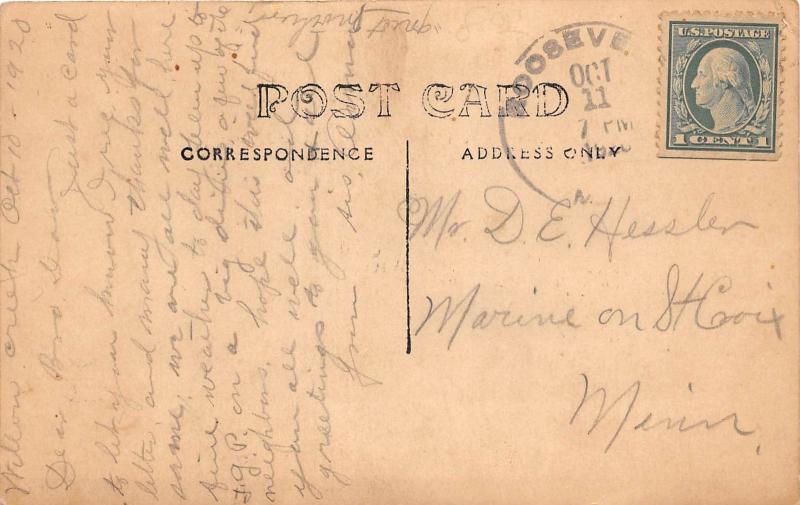 POST CARD
CORRESPONDENCE
ADDRESS ONLY
U.S. POSTAGE
1 CENT 1
ROOSEVE
OCT
11
7 PM
Mr D. E. Hessler
Marine on St Croix
Minn,
Willow Creek Oct 10 1920
Dear Bro Dean Just a card
to let you know I rec your
letter and many thanks for
same, we are all well here
fine weather to day been up to
on a big drive a few
neighbors, hope this will find
you all well and
greetings to you all
your sis,